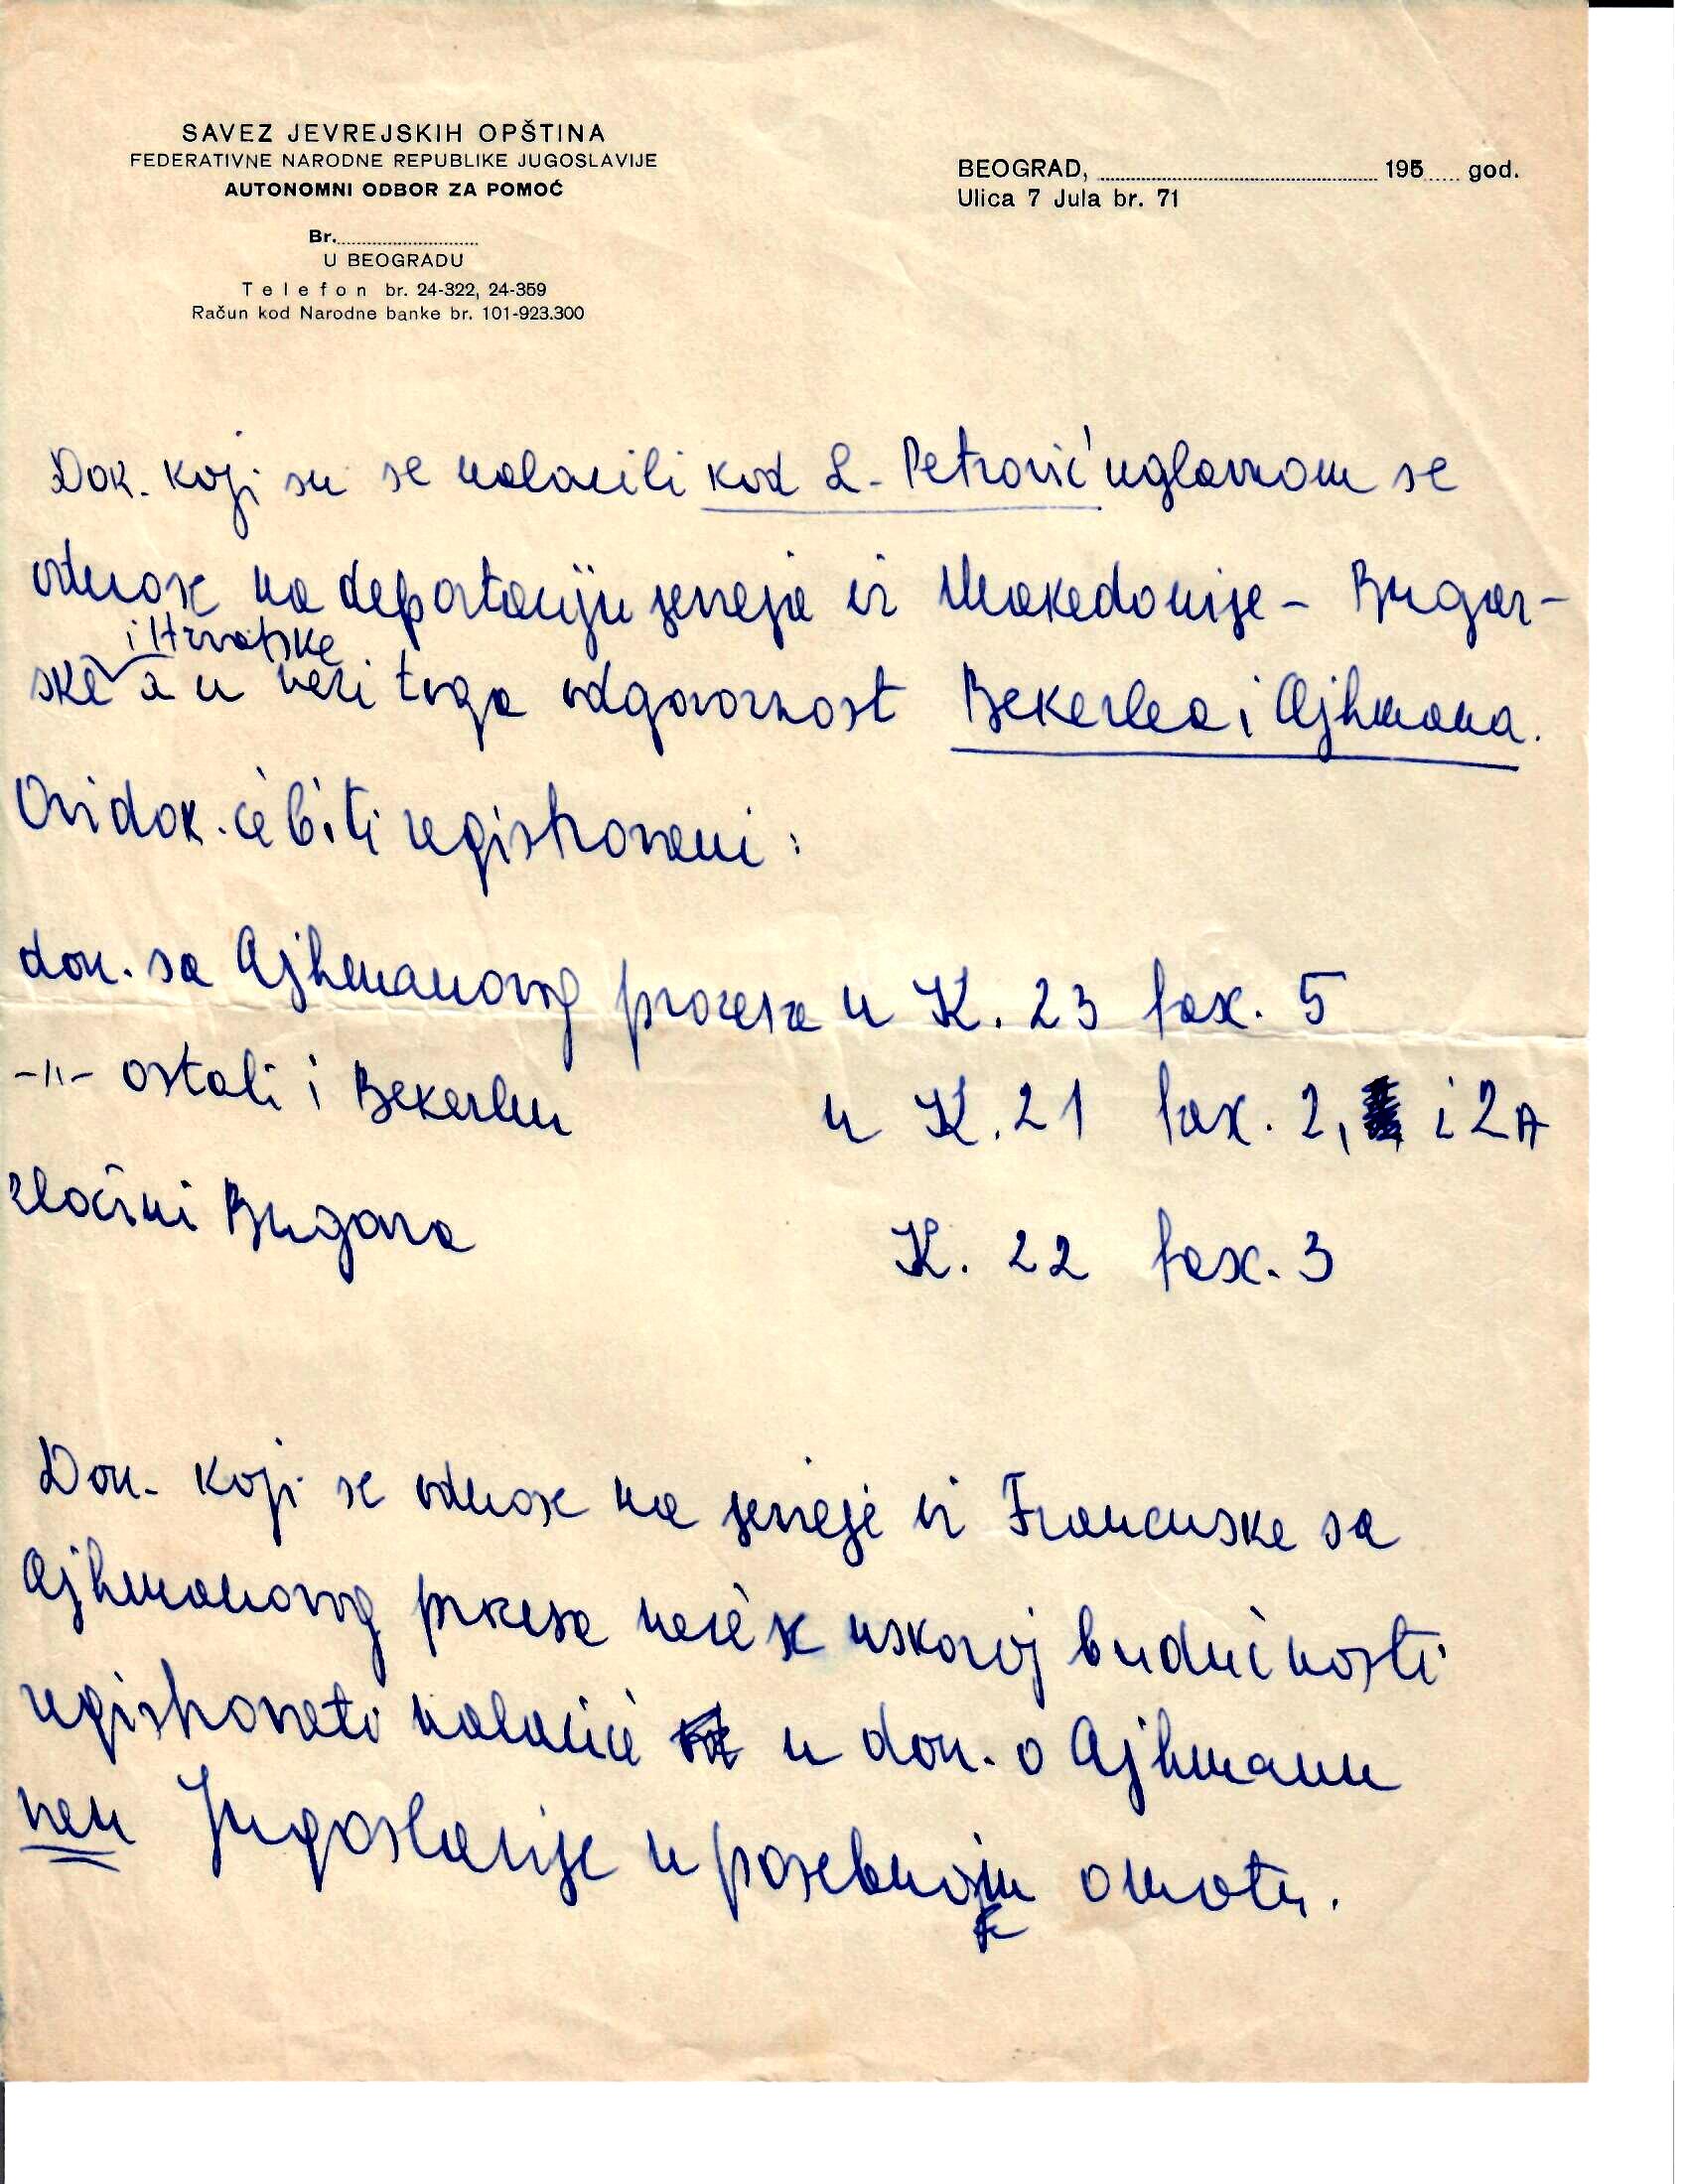 SAVEZ JEVREJSKIH OPŠTINA
FEDERATIVNE NARODNE REPUBLIKE JUGOSLAVIJE
AUTONOMNI ODBOR ZA POMOĆ
Br.
U BEOGRADU
Telefon br. 24-322, 24-359
Račun kod Narodne banke br. 101-923.300
BEOGRAD, 195 god.
Ulica 7 Jula br. 71
Dok. koji su se nalazili kod L. Petrović uglavnom se
odnose na deportaciju jevreja iz Makedonije - Bugar-
i Hrvatske
ske a u vezi toga odgovornost Bekerlea i Ajhmana.
Ovi dok. će biti registrovani:
dok. sa Ajhmanovog procesa u K. 23 fasc. 5
-"- ostali i Bekerleu u K. 21 fasc. 2, i 2A
zločini Bugara K. 22 fasc. 3
Dok. koji se odnose na jevreje iz Francuske sa
Ajhmanovog procesa neće se uskoroj budućnosti
registrovati nalaziće u dok. o Ajhmanu
van Jugoslavije u posebnom omotu.